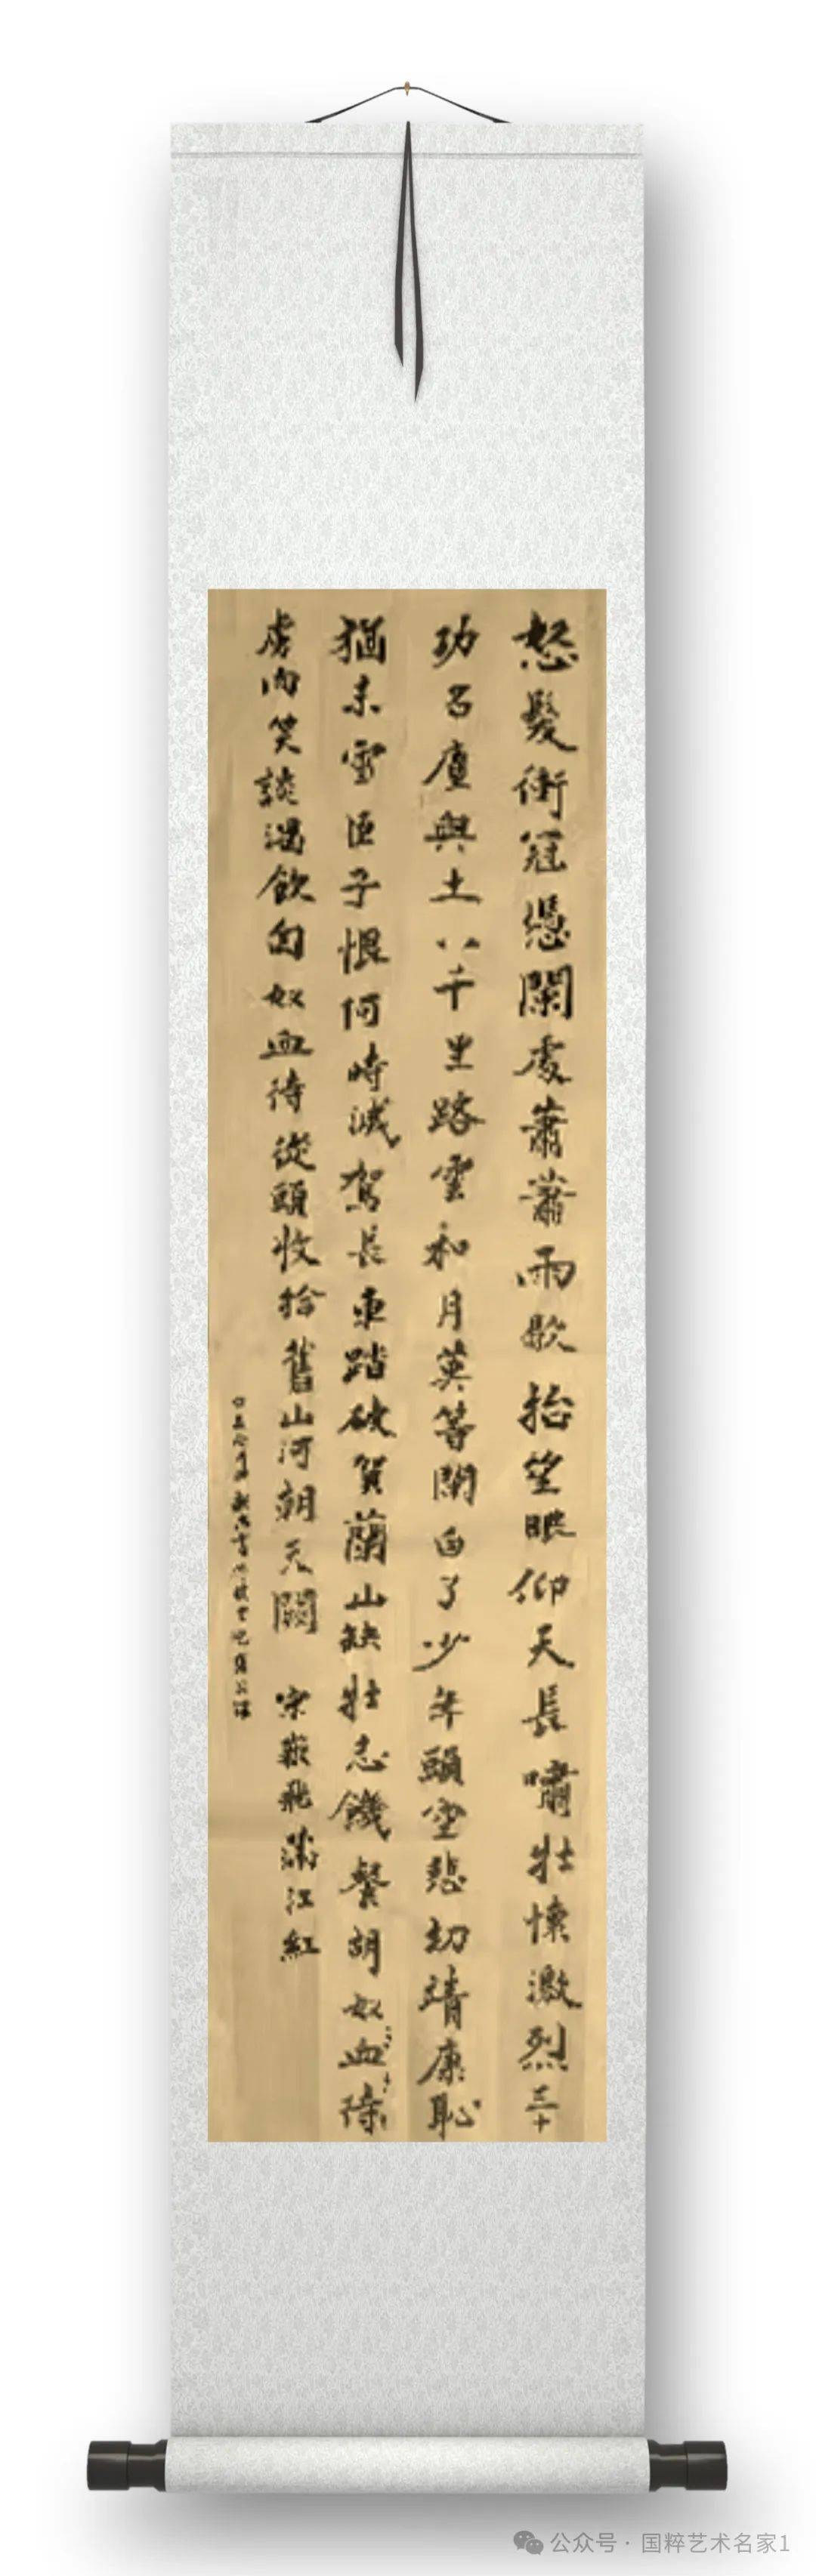 怒髮衝冠憑闌處蕭蕭雨歇抬望眼仰天長嘯壯懷激烈三十
功名塵與土八千里路雲和月莫等閒白了少年頭空悲切靖康恥
猶未雪臣子恨何時滅駕長車踏破賀蘭山缺壯志饑餐胡奴血待
虜肉笑談渴飲匈奴血待從頭收拾舊山河朝天闕 宋嶽飛滿江紅
公众号 · 国粹艺术名家1